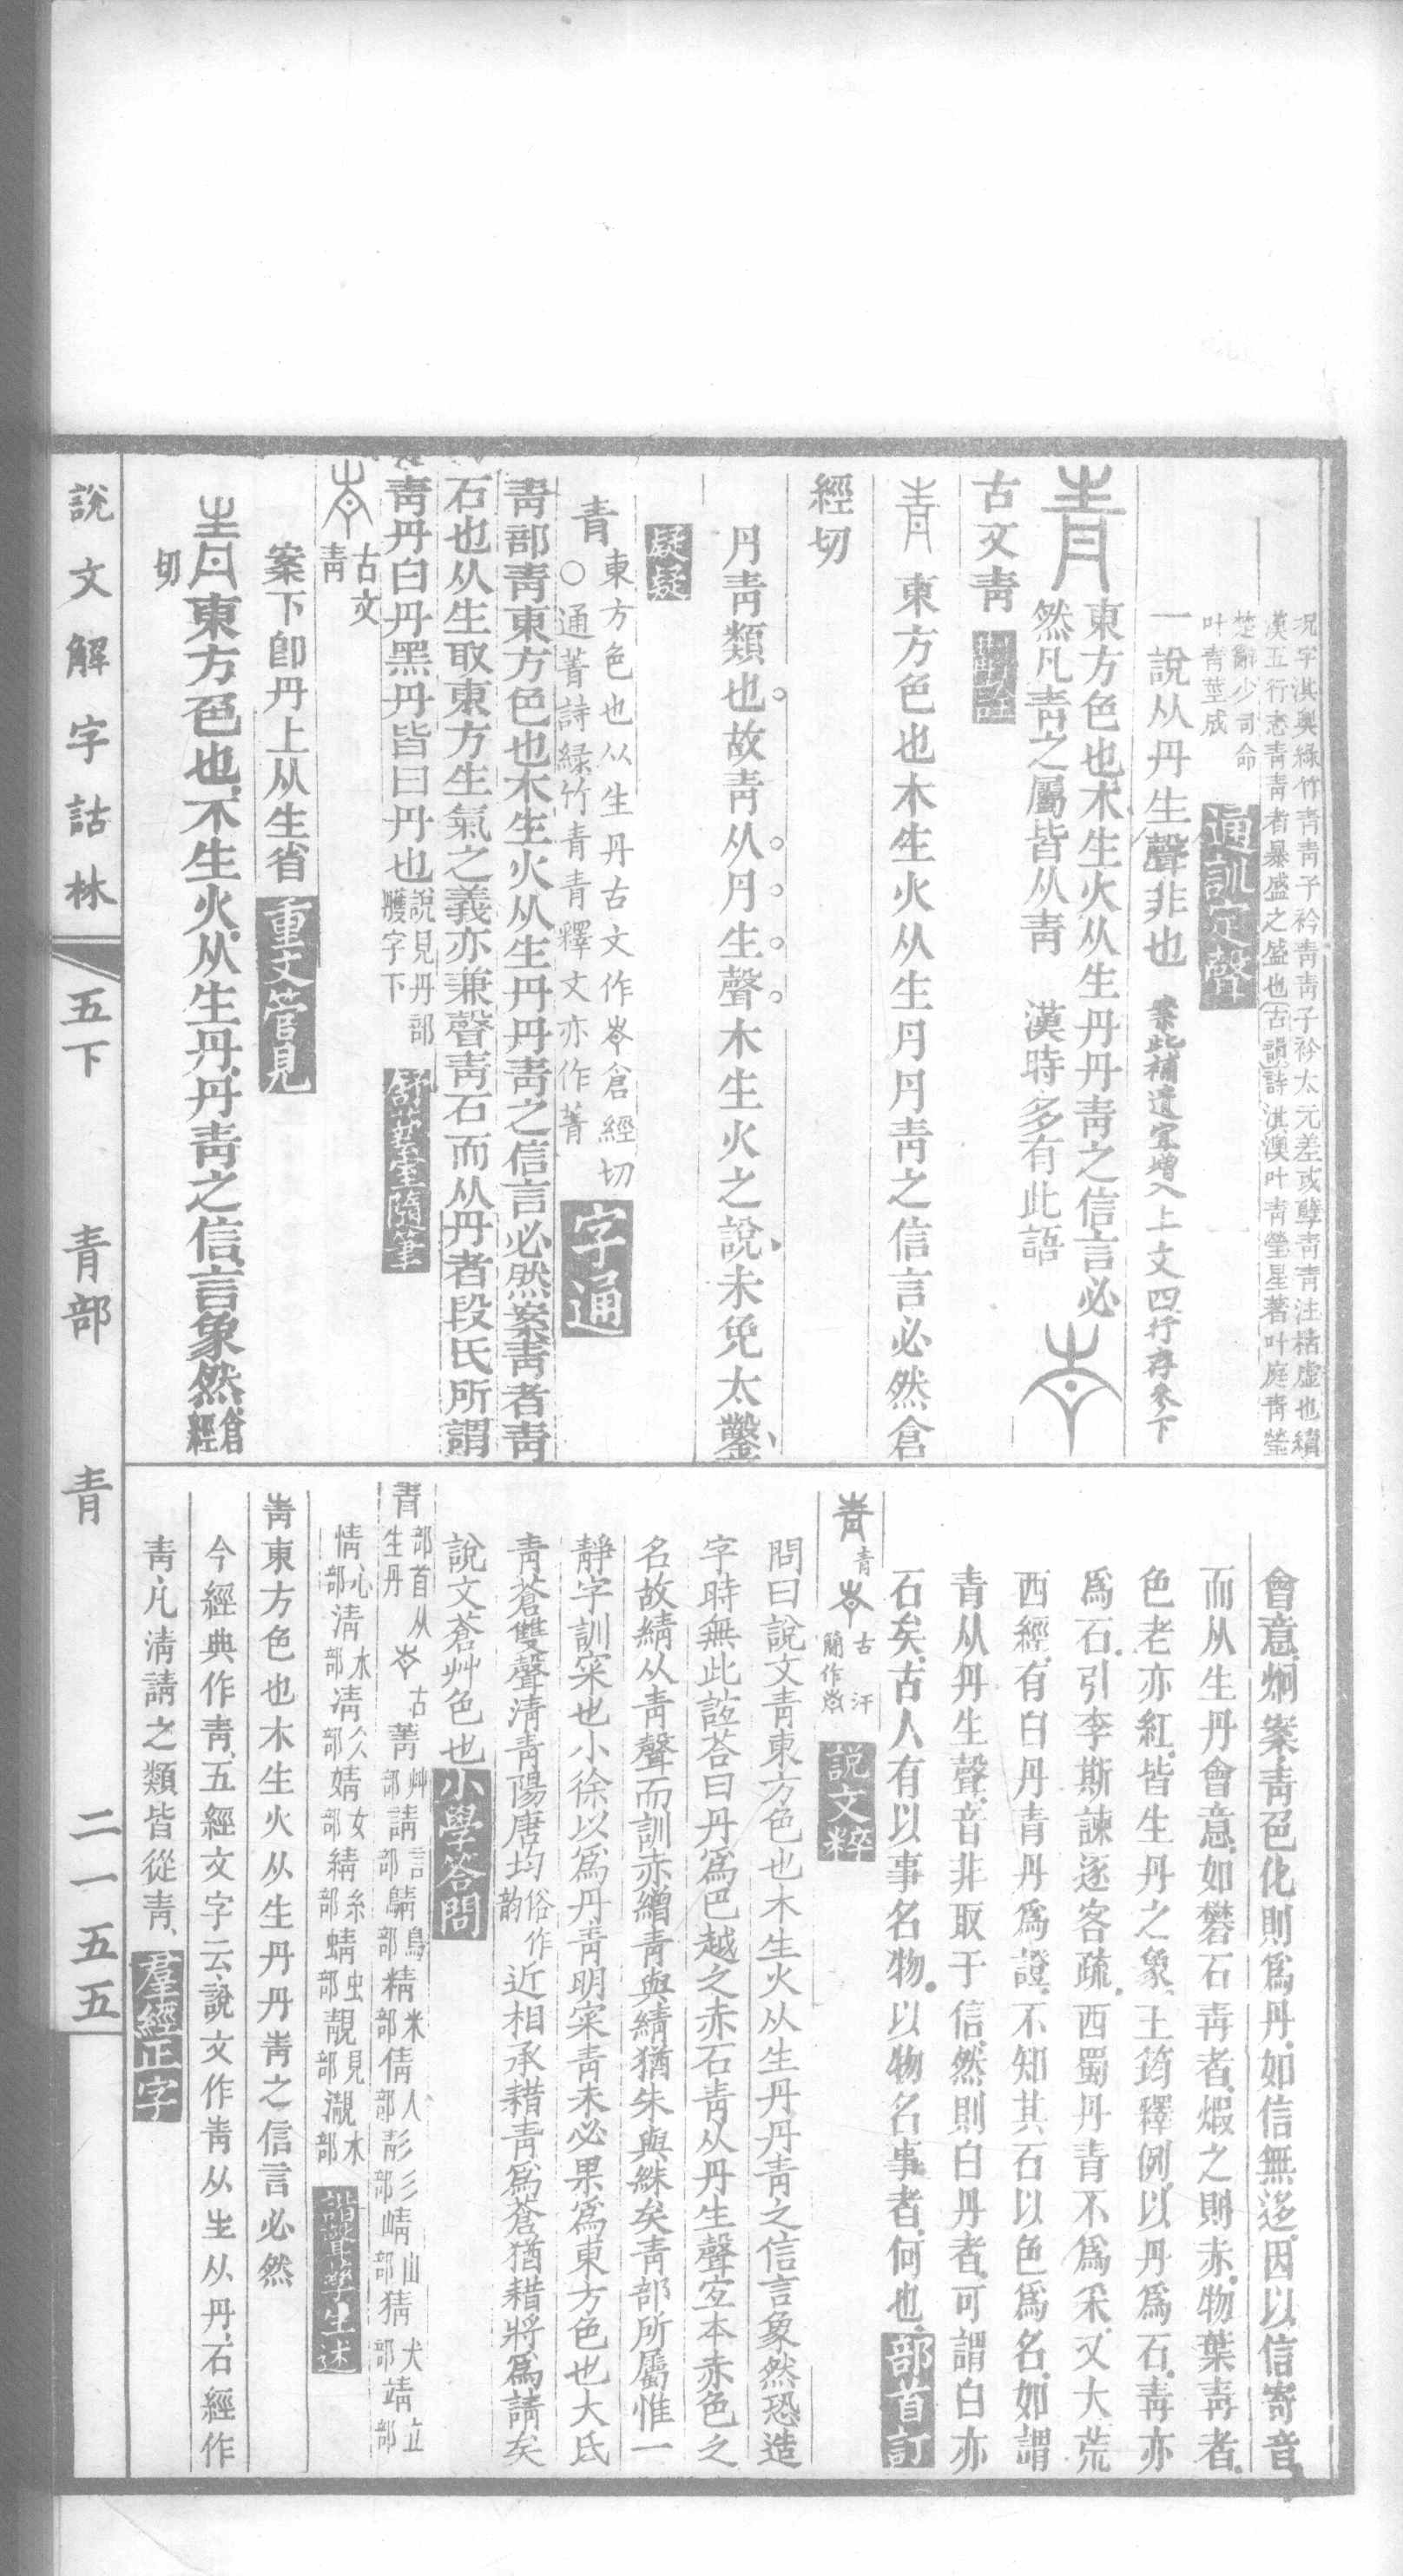 况字淇奧綠竹靑靑子衿靑靑子衿太元差或孽靑靑注枯虛也續
漢五行志靑靑者暴盛之盛也古韻詩淇澳叶靑瑩星著叶庭靑瑩
楚辭少司命
叶靑莖成
通訓定聲
一說从丹生聲非也 案此補遺宜增入上文四行存參下
靑 東方色也木生火从生丹丹靑之信言必
然凡靑之屬皆从靑 漢時多有此語
古文靑
靑 東方色也木生火从生丹丹靑之信言必然倉
經切
丹靑類也故靑从丹生聲木生火之說未免太鑿
疑疑
靑 東方色也从生丹古文作岺倉經切
○通菁詩綠竹青青釋文亦作菁
字通
靑部靑東方色也木生火从生丹丹靑之信言必然案靑者靑
石也从生取東方生氣之義亦兼聲靑石而从丹者段氏所謂
靑丹白丹黑丹皆曰丹也 說見丹部
雘字下
舒萟室隨筆
古文
靑
案下卽丹上从生省 重文管見
靑東方色也木生火从生丹丹靑之信言象然倉經
切
會意炯案靑色化則爲丹如信無迻因以信寄音
而从生丹會意如礬石靑者煆之則赤物葉靑者
色老亦紅皆生丹之象王筠釋例以丹爲石靑亦
爲石引李斯諫逐客疏西蜀丹靑不爲釆又大荒
西經有白丹青丹爲證不知其石以色爲名如謂
青从丹生聲音非取于信然則白丹者可謂白亦
石矣古人有以事名物以物名事者何也 部首訂
靑 青 古 汗
簡作
說文粹
問曰說文青東方色也木生火从生丹丹青之信言象然恐造
字時無此誼荅曰丹爲巴越之赤石青从丹生聲宐本赤色之
名故綪从青聲而訓赤繒青與綪猶朱與絑矣青部所屬惟一
靜字訓寀也小徐以爲丹青明寀青未必果爲東方色也大氐
青蒼雙聲淸青陽唐均俗作韵近相承耤青爲蒼猶耤將爲請矣
說文蒼艸色也 小學答問
青 部首从
生丹 古 菁艸部 請言部 鶄鳥部 精米部 倩人部 彰彡部 崝山部 猜犬部 靖立部
情心部 淸水部 凊仌部 婧女部 綪糸部 蜻虫部 靚見部 瀞水部 諧聲孳生述
靑東方色也木生火从生丹丹靑之信言必然
今經典作靑五經文字云說文作靑从生从丹石經作
青凡淸請之類皆從靑 羣經正字
說文解字詁林 五下 青部 青 二一五五